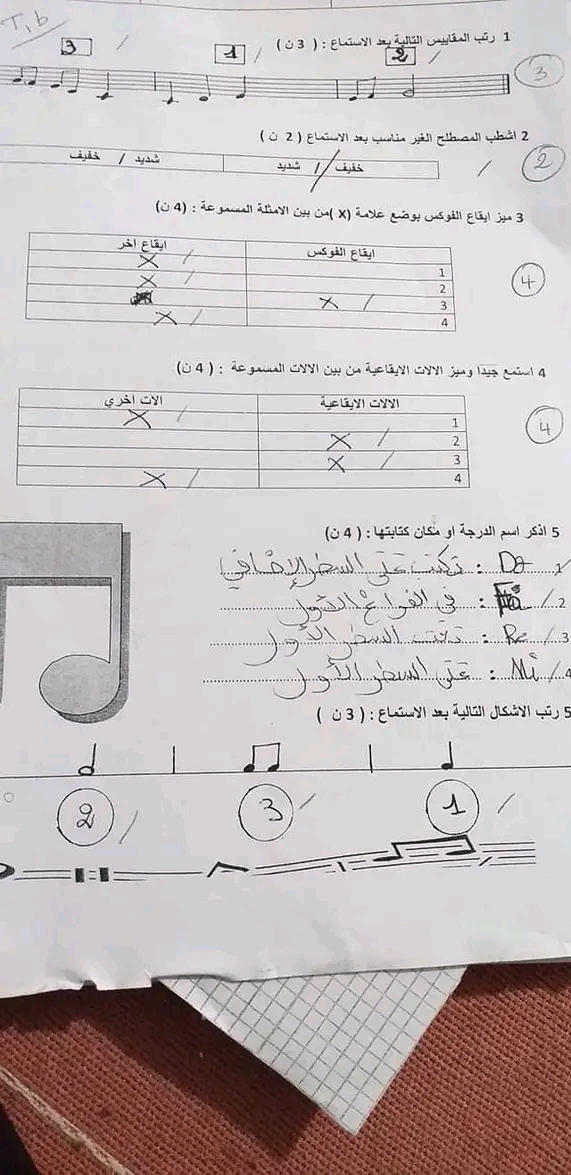 T.b
1 رتب المقاييس التالية بعد الاستماع : ( 3 ن )
3 1 2
3
2 اشطب المصطلح الغير مناسب بعد الاستماع ( 2 ن )
خفيف / شديد شديد / خفيف
2
3 ميز ايقاع الفوكس بوضع علامة (X )من بين الامثلة المسموعة : (4 ن)
ايقاع الفوكس ايقاع اخر
1 X
2 X
3 X
4 X
4
4 استمع جيدا وميز الالات الايقاعية من بين الالات المسموعة : ( 4 ن)
الالات الايقاعية الات اخرى
1 X
2 X
3 X
4 X
4
5 اذكر اسم الدرجة او مكان كتابتها : ( 4 ن)
1 Do : تكتب على السطر الإضافي
2 : في الفراغ الأول
3 Re : تحت السطر الأول
4 Mi : على السطر الأول
5 رتب الاشكال التالية بعد الاستماع : ( 3 ن )
1 3 2